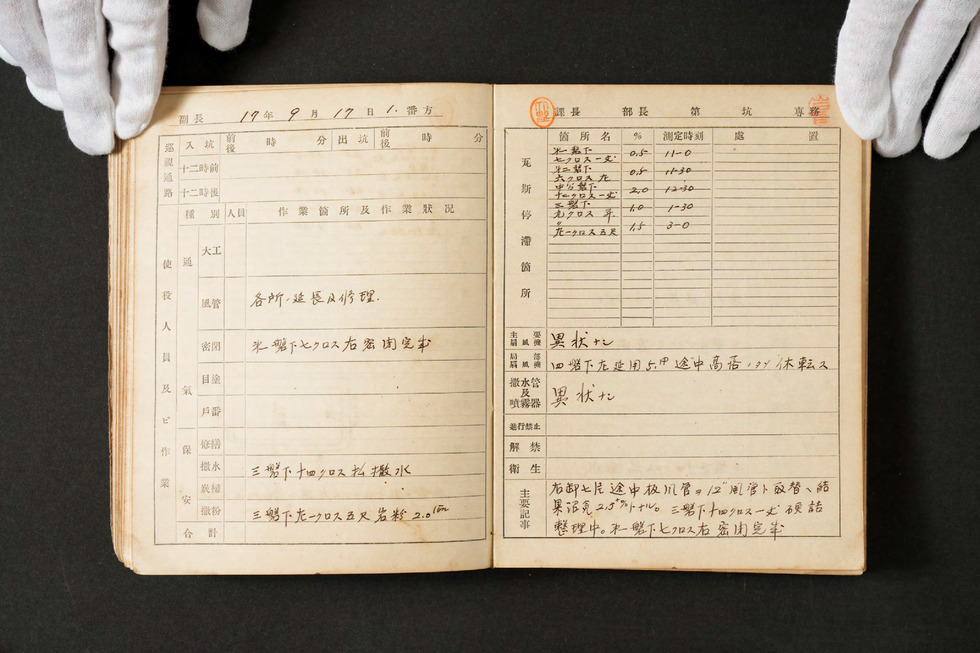 副長 17年9月17日1.番方
巡視通路 入坑 前後 時 分 出坑 前後 時 分
十二時前
十二時後
使役人員及ビ作業
種別 人員 作業箇所及作業狀况
通氣
大工
風管 各所ノ延長及修理.
密閉 米一盤下七クロス右密閉完畢
目塗
戶番
保安
修繕
撒水 三盤下十四クロス払撒水
炭掃
撒粉 三盤下左一クロス五尺岩粉2.0
合計
課長 部長 第 坑 専務
瓦斯停滯箇所
箇所名 % 測定時刻 處置
米一盤下
七クロス一丈 0.5 11-0
米二盤下
六クロス左 0.8 11-30
十一クロス一丈 2.0 12-30
三盤下
九クロス昇 1.0 1-30
〃
左一クロス五尺 1.5 3-0
主要扇風機 異状ナシ
局部扇風機 四盤下左延用5.HP途中高落ノタメ休転ス
撒水管及噴霧器 異状ナシ
進行禁止
解禁
衛生
主要記事
右卸七片途中板風管ヲ12"風管ト取替ヘ結
果沼気2.5%トナル。三盤下十四クロス一丈硬詰
整理中。米一盤下七クロス右密閉完畢